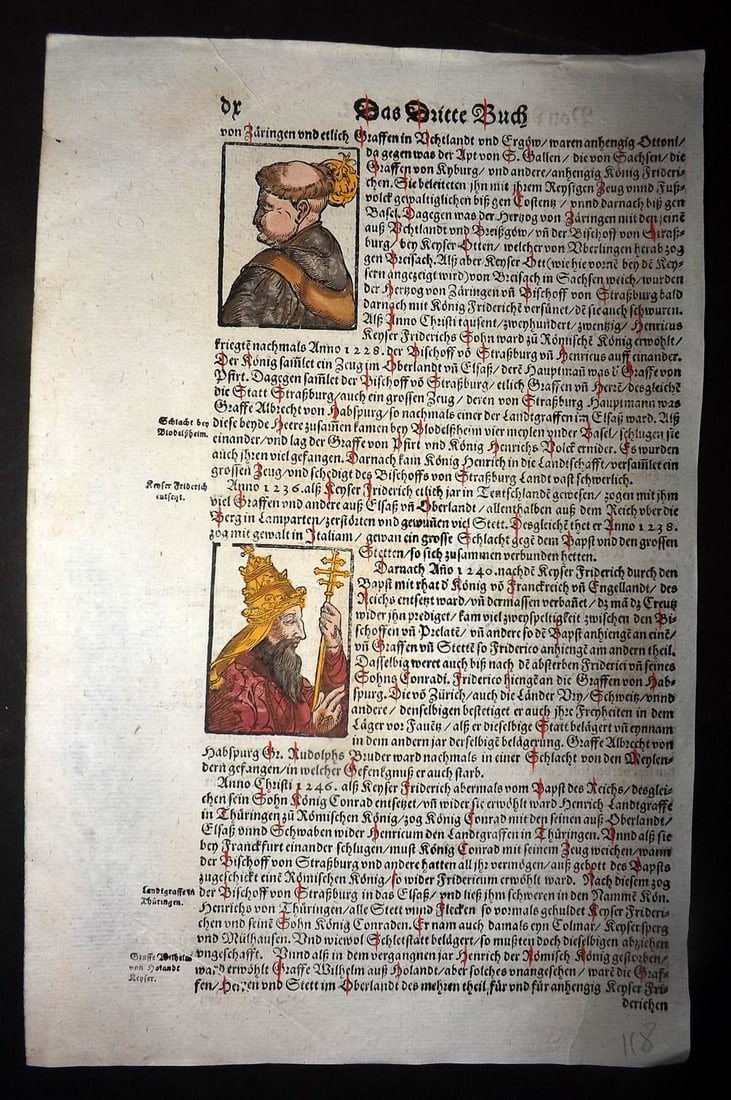 dx
Das Dritte Buch
von Zäringen vnd etlich Graffen in Vchtlandt vnd Ergöw/ waren anhengig Ottoni/
da gegen was der Apt von S. Gallen/ die von Sachsen/ die
Graffen von Kyburg/ vnd andere/ anhengig König Frideri-
chen. Sie beleiteten jhn mit jhrem Reysigen Zeug vnnd Fuß-
volck gewaltiglichen biß gen Costentz/ vnnd darnach biß gen
Basel. Dagegen was der Hertzog von Zäringen mit den
auß Vchtlandt vnd Breißgöw/ vñ der Bischoff von Straß-
burg/ bey Keyser Otten/ welcher von Vberlingen herab zog
gen Breisach. Alß aber Keyser Ott (wie hie vornẽ bey dẽ Key-
sern angezeigt wird) von Breisach in Sachsen weich/ wurden
der Hertzog von Zäringen vñ Bischoff von Straßburg bald
darnach mit König Friderichẽ versünet/ dẽ sie auch schwuren.
Alß Anno Christi tausent/ zweyhundert/ zwentzig/ Henricus
Keyser Friderichs Sohn ward zu Römischẽ König erwöhlt/
kriegtẽ nachmals Anno 1228. der Bischoff võ Straßburg vñ Henricus auff einander.
Der König samlet ein Zeug im Oberlandt vñ Elsaß/ derẽ Hauptmañ was Graffe von
Pfirt. Dagegen samlet der Bischoff võ Straßburg/ etlich Graffen vñ Herrẽ/ desgleichẽ
die Statt Straßburg/ auch ein grossen Zeug/ deren von Straßburg Hauptmann was
Graffe Albrecht von Habspurg/ so nachmals einer der Landtgraffen im Elsaß ward. Alß
Schlacht bey
Blodelßheim.
diese beyde Heere zusamen kamen bey Blodelßheim vier meylen vnder Basel/ schlugen sie
einander/ vnd lag der Graffe von Pfirt vnd König Henrichs Volck ernider. Es wurden
auch jhren viel gefangen. Darnach kam König Henrich in die Landtschafft/ versamlet ein
grossen Zeug/ vnd schedigt des Bischoffs von Straßburg Landt vast schwerlich.
Keyser Friderich
entsetzt.
Anno 1236. alß Keyser Friderich etlich jar in Teutschlandt gewesen/ zogen mit jhm
viel Graffen vnd andere auß Elsaß vñ Oberlandt/ allenthalben auß dem Reich vber die
Berg in Lamparten/ zerstörten vnd gewuñen viel Stett. Desgleichẽ thet er Anno 1238.
zog mit gewalt in Italiam/ gewan ein grosse Schlacht gegẽ dem Bapst vnd den grossen
Stetten/ so sich zusammen verbunden hetten.
Darnach Año 1240. nachdẽ Keyser Friderich durch den
Bapst mit rhat d' König võ Franckreich vñ Engellandt/ des
Reichs entsetzt ward/ vñ dermassen verbañet/ dz mã dz Creutz
wider jhn prediget/ kam viel zweyspeltigkeit zwischen den Bi-
schoffen vñ Prelatẽ/ vñ andere so dẽ Bapst anhiengẽ an einẽ/
vñ Graffen vñ Stettẽ so Friderico anhiengẽ am andern theil.
Dasselbig weret auch biß nach dẽ absterben Friderici vñ seines
Sohns Conradi. Friderico hiengẽ an die Graffen von Hab-
spurg. Die võ Zürich/ auch die Länder Vry/ Schweitz/ vnnd
andere/ denselbigen bestetiget er auch jhre Freyheiten in dem
Läger vor Faventz/ alß er dieselbige Statt belägert vñ eynnam
in dem andern jar derselbigẽ belägerung. Graffe Albrecht von
Habspurg Gr. Rudolphs Bruder ward nachmals in einer Schlacht von den Meylen-
dern gefangen/ in welcher Gefenknuß er auch starb.
Anno Christi 1246. alß Keyser Friderich abermals vom Bapst des Reichs/ desglei-
chen sein Sohn König Conrad entsetzet/ vñ wider sie erwöhlt ward Henrich Landtgraffe
in Thüringen zu Römischen König/ zog König Conrad mit den seinen auß Oberlandt/
Elsaß vnnd Schwaben wider Henricum den Landtgraffen in Thüringen. Vnnd alß sie
bey Franckfurt einander schlugen/ must König Conrad mit seinem Zeug weichen/ wann
der Bischoff von Straßburg vnd andere hatten all jhr vermögen/ auß gebott des Bapsts
zugeschickt eine Römischen König/ so wider Fridericum erwöhlt ward. Nach diesem zog
Landtgraffe in
Thüringen.
der Bischoff von Straßburg in das Elsaß/ vnd ließ jhm schweren in den Nammẽ Kön.
Henrichs von Thüringen/ alle Stett vnnd Flecken so vormals gehuldet Keyser Frideri-
chen vnd seinẽ Sohn König Conraden. Er nam auch damals eyn Colmar/ Keysersperg
vnd Mülhausen. Vnd wiewol Schletstatt belägert/ so mußten doch dieselbigen abziehen
Graffe Wilhelm
von Holandt
Keyser.
vngeschafft. Vnnd alß in dem vergangnen jar Henrich der Römisch König gestorben/
ward erwöhlt Graffe Wilhelm auß Holandt/ aber solches vnangesehen/ warẽ die Graf-
fen/ Herren vnd Stett im Oberlandt des mehren theil/ für vnd für anhengig Keyser Fri-
derichen
118